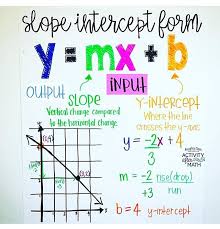 slope intercept form
y = mx + b
INPUT
OUTPUT
SLOPE
Vertical change compared
to the horizontal change
Y-intercept
Where the line
crosses the y-axis
y = -2x + 4
3
m = -2 rise(drop)
+3 run
b = 4 y-intercept
ACTIVITY
AFTER
MATH